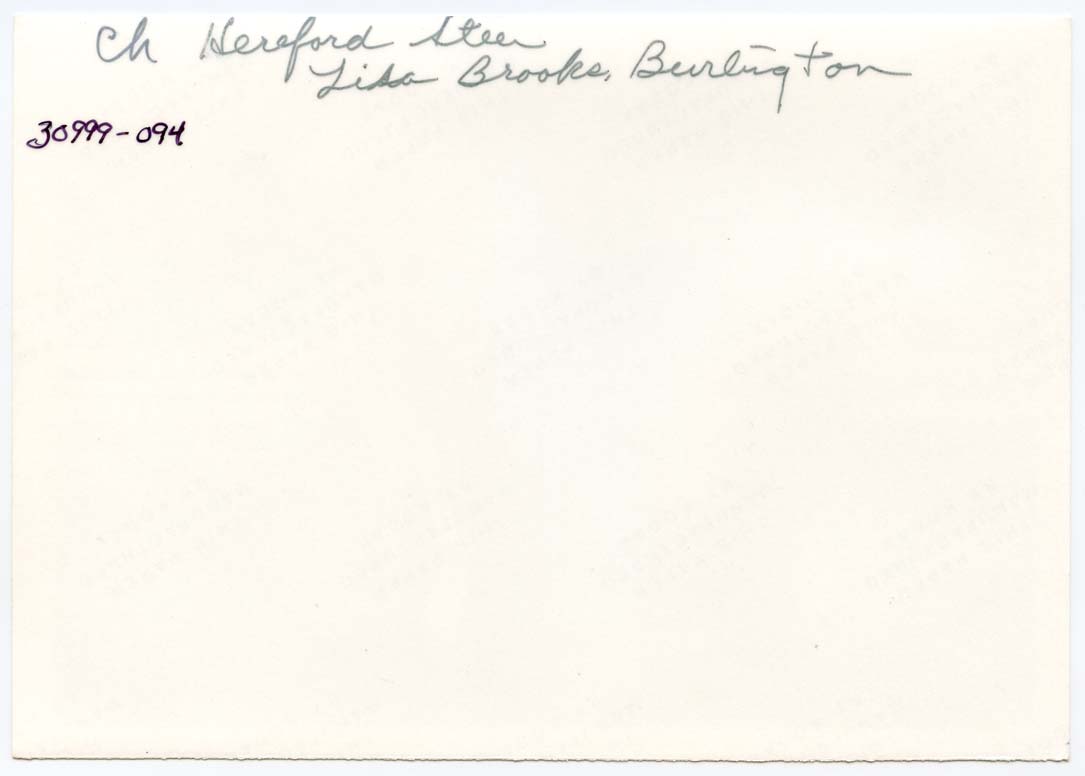 Ch Hereford Steer
Lisa Brooks, Burlington
30999-094